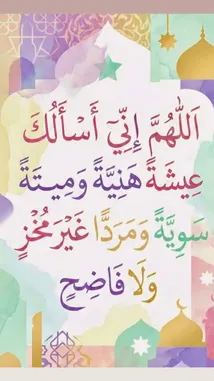 اَللّٰهُمَّ إِنِّيٓ أَسْأَلُكَ
عِيشَةً هَنِيَّةً وَمِيتَةً
سَوِيَّةً وَمَرَدًّا غَيْرَ مُخْزٍ
وَلَا فَاضِحٍ